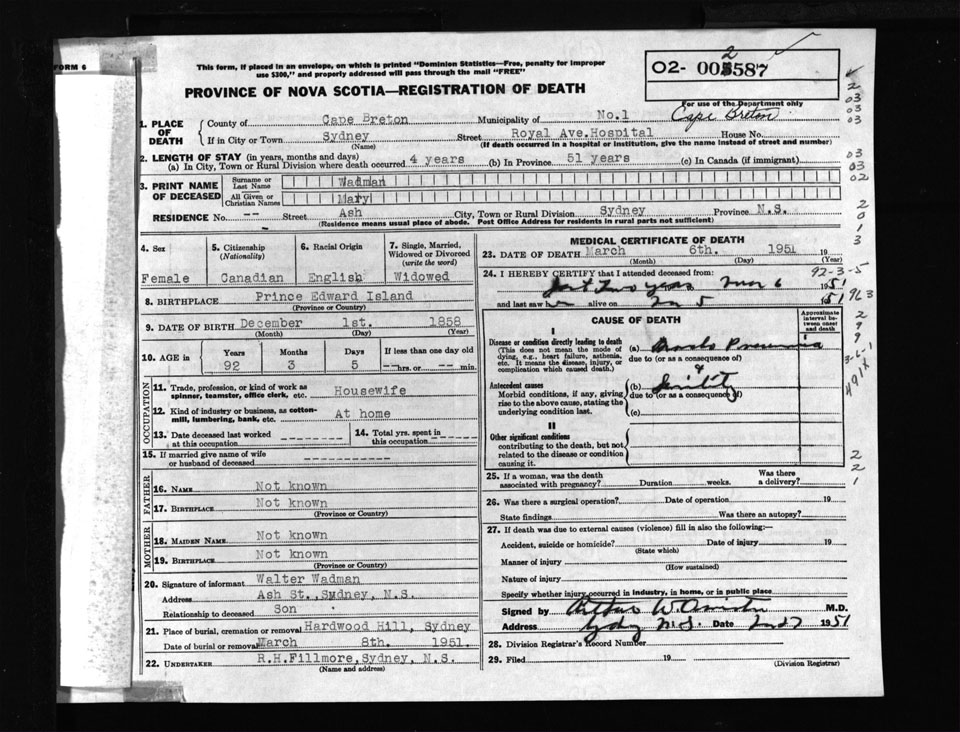 FORM 6
This form, if placed in an envelope, on which is printed "Dominion Statistics—Free, penalty for improper
use $300," and properly addressed will pass through the mail "FREE"
PROVINCE OF NOVA SCOTIA—REGISTRATION OF DEATH
02- 002587
For use of the Department only
Cape Breton
1. PLACE OF DEATH
County of Cape Breton Municipality of No.1
If in City or Town Sydney Street Royal Ave.Hospital House No.
(Name) (If death occurred in a hospital or institution, give the name instead of street and number)
2. LENGTH OF STAY (in years, months and days)
(a) In City, Town or Rural Division where death occurred 4 years (b) In Province 51 years (c) In Canada (if immigrant)
3. PRINT NAME OF DECEASED
Surname or Last Name Wadman
All Given or Christian Names Mary
RESIDENCE No. -- Street Ash City, Town or Rural Division Sydney Province N.S.
(Residence means usual place of abode. Post Office Address for residents in rural parts not sufficient)
4. Sex Female
5. Citizenship (Nationality) Canadian
6. Racial Origin English
7. Single, Married, Widowed or Divorced (write the word) Widowed
8. BIRTHPLACE Prince Edward Island
(Province or Country)
9. DATE OF BIRTH December 1st. 1858
(Month) (Day) (Year)
10. AGE in Years 92 Months 3 Days 5 If less than one day old --hrs. or --min.
OCCUPATION
11. Trade, profession, or kind of work as spinner, teamster, office clerk, etc. Housewife
12. Kind of industry or business, as cotton-mill, lumbering, bank, etc. At home
13. Date deceased last worked at this occupation
14. Total yrs. spent in this occupation
15. If married give name of wife or husband of deceased
FATHER
16. NAME Not known
17. BIRTHPLACE Not known
(Province or Country)
MOTHER
18. MAIDEN NAME Not known
19. BIRTHPLACE Not known
(Province or Country)
20. Signature of informant Walter Wadman
Address Ash St., Sydney, N.S.
Relationship to deceased Son
21. Place of burial, cremation or removal Hardwood Hill, Sydney
Date of burial or removal March 8th. 1951.
22. UNDERTAKER R.H.Fillmore, Sydney, N.S.
(Name and address)
MEDICAL CERTIFICATE OF DEATH
23. DATE OF DEATH March 6th. 1951 19
(Month) (Day) (Year)
24. I HEREBY CERTIFY that I attended deceased from:
92-3-5
two years Mar 6 1951
and last saw her alive on Mar 5 1951
CAUSE OF DEATH
Approximate interval between onset and death
I
Disease or condition directly leading to death
(This does not mean the mode of dying, e.g., heart failure, asthenia, etc. It means the disease, injury, or complication which caused death.)
(a) Broncho Pneumonia
due to (or as a consequence of)
Antecedent causes
Morbid conditions, if any, giving rise to the above cause, stating the underlying condition last.
(b) Senility
due to (or as a consequence of)
(c)
II
Other significant conditions
contributing to the death, but not related to the disease or condition causing it.
25. If a woman, was the death associated with pregnancy? Duration weeks. Was there a delivery?
26. Was there a surgical operation? Date of operation 19
State findings Was there an autopsy?
27. If death was due to external causes (violence) fill in also the following:—
Accident, suicide or homicide? Date of injury 19
(State which)
Manner of injury
(How sustained)
Nature of injury
Specify whether injury occurred in industry, in home, or in public place
Signed by Arthur W. M.D.
Address Sydney N.S. Date 1951
28. Division Registrar's Record Number
29. Filed 19
(Division Registrar)
2
03
03
03
03
03
02
2
0
1
3
963
2
9
9
3-6-1
491X
2
2
1